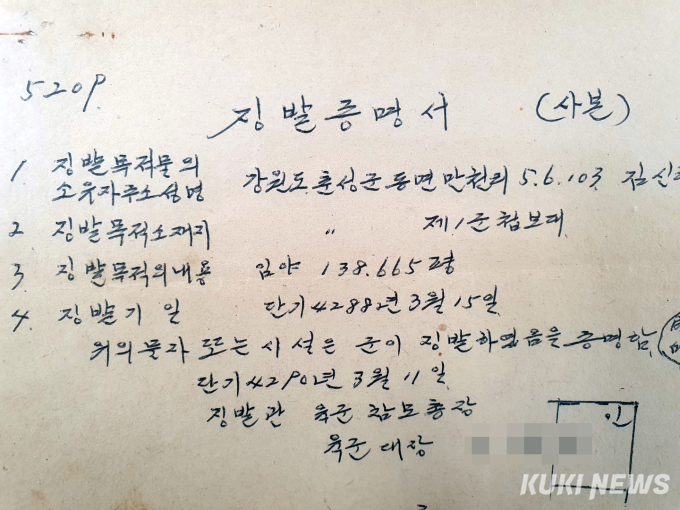 5209
징발증명서 (사본)
1 징발목적물의
소유자주소성명 강원도 춘성군 동면 만천리 5.6.103 김신
2 징발목적소재지 〃 제1군첩보대
3 징발목적의내용 임야 138.665평
4. 징발기일 단기4288년3월15일
위의 물자 또는 시설은 군이 징발하였음을 증명함
단기4290년3월11일
징발관 육군참모총장
육군대장 인
KUKI NEWS